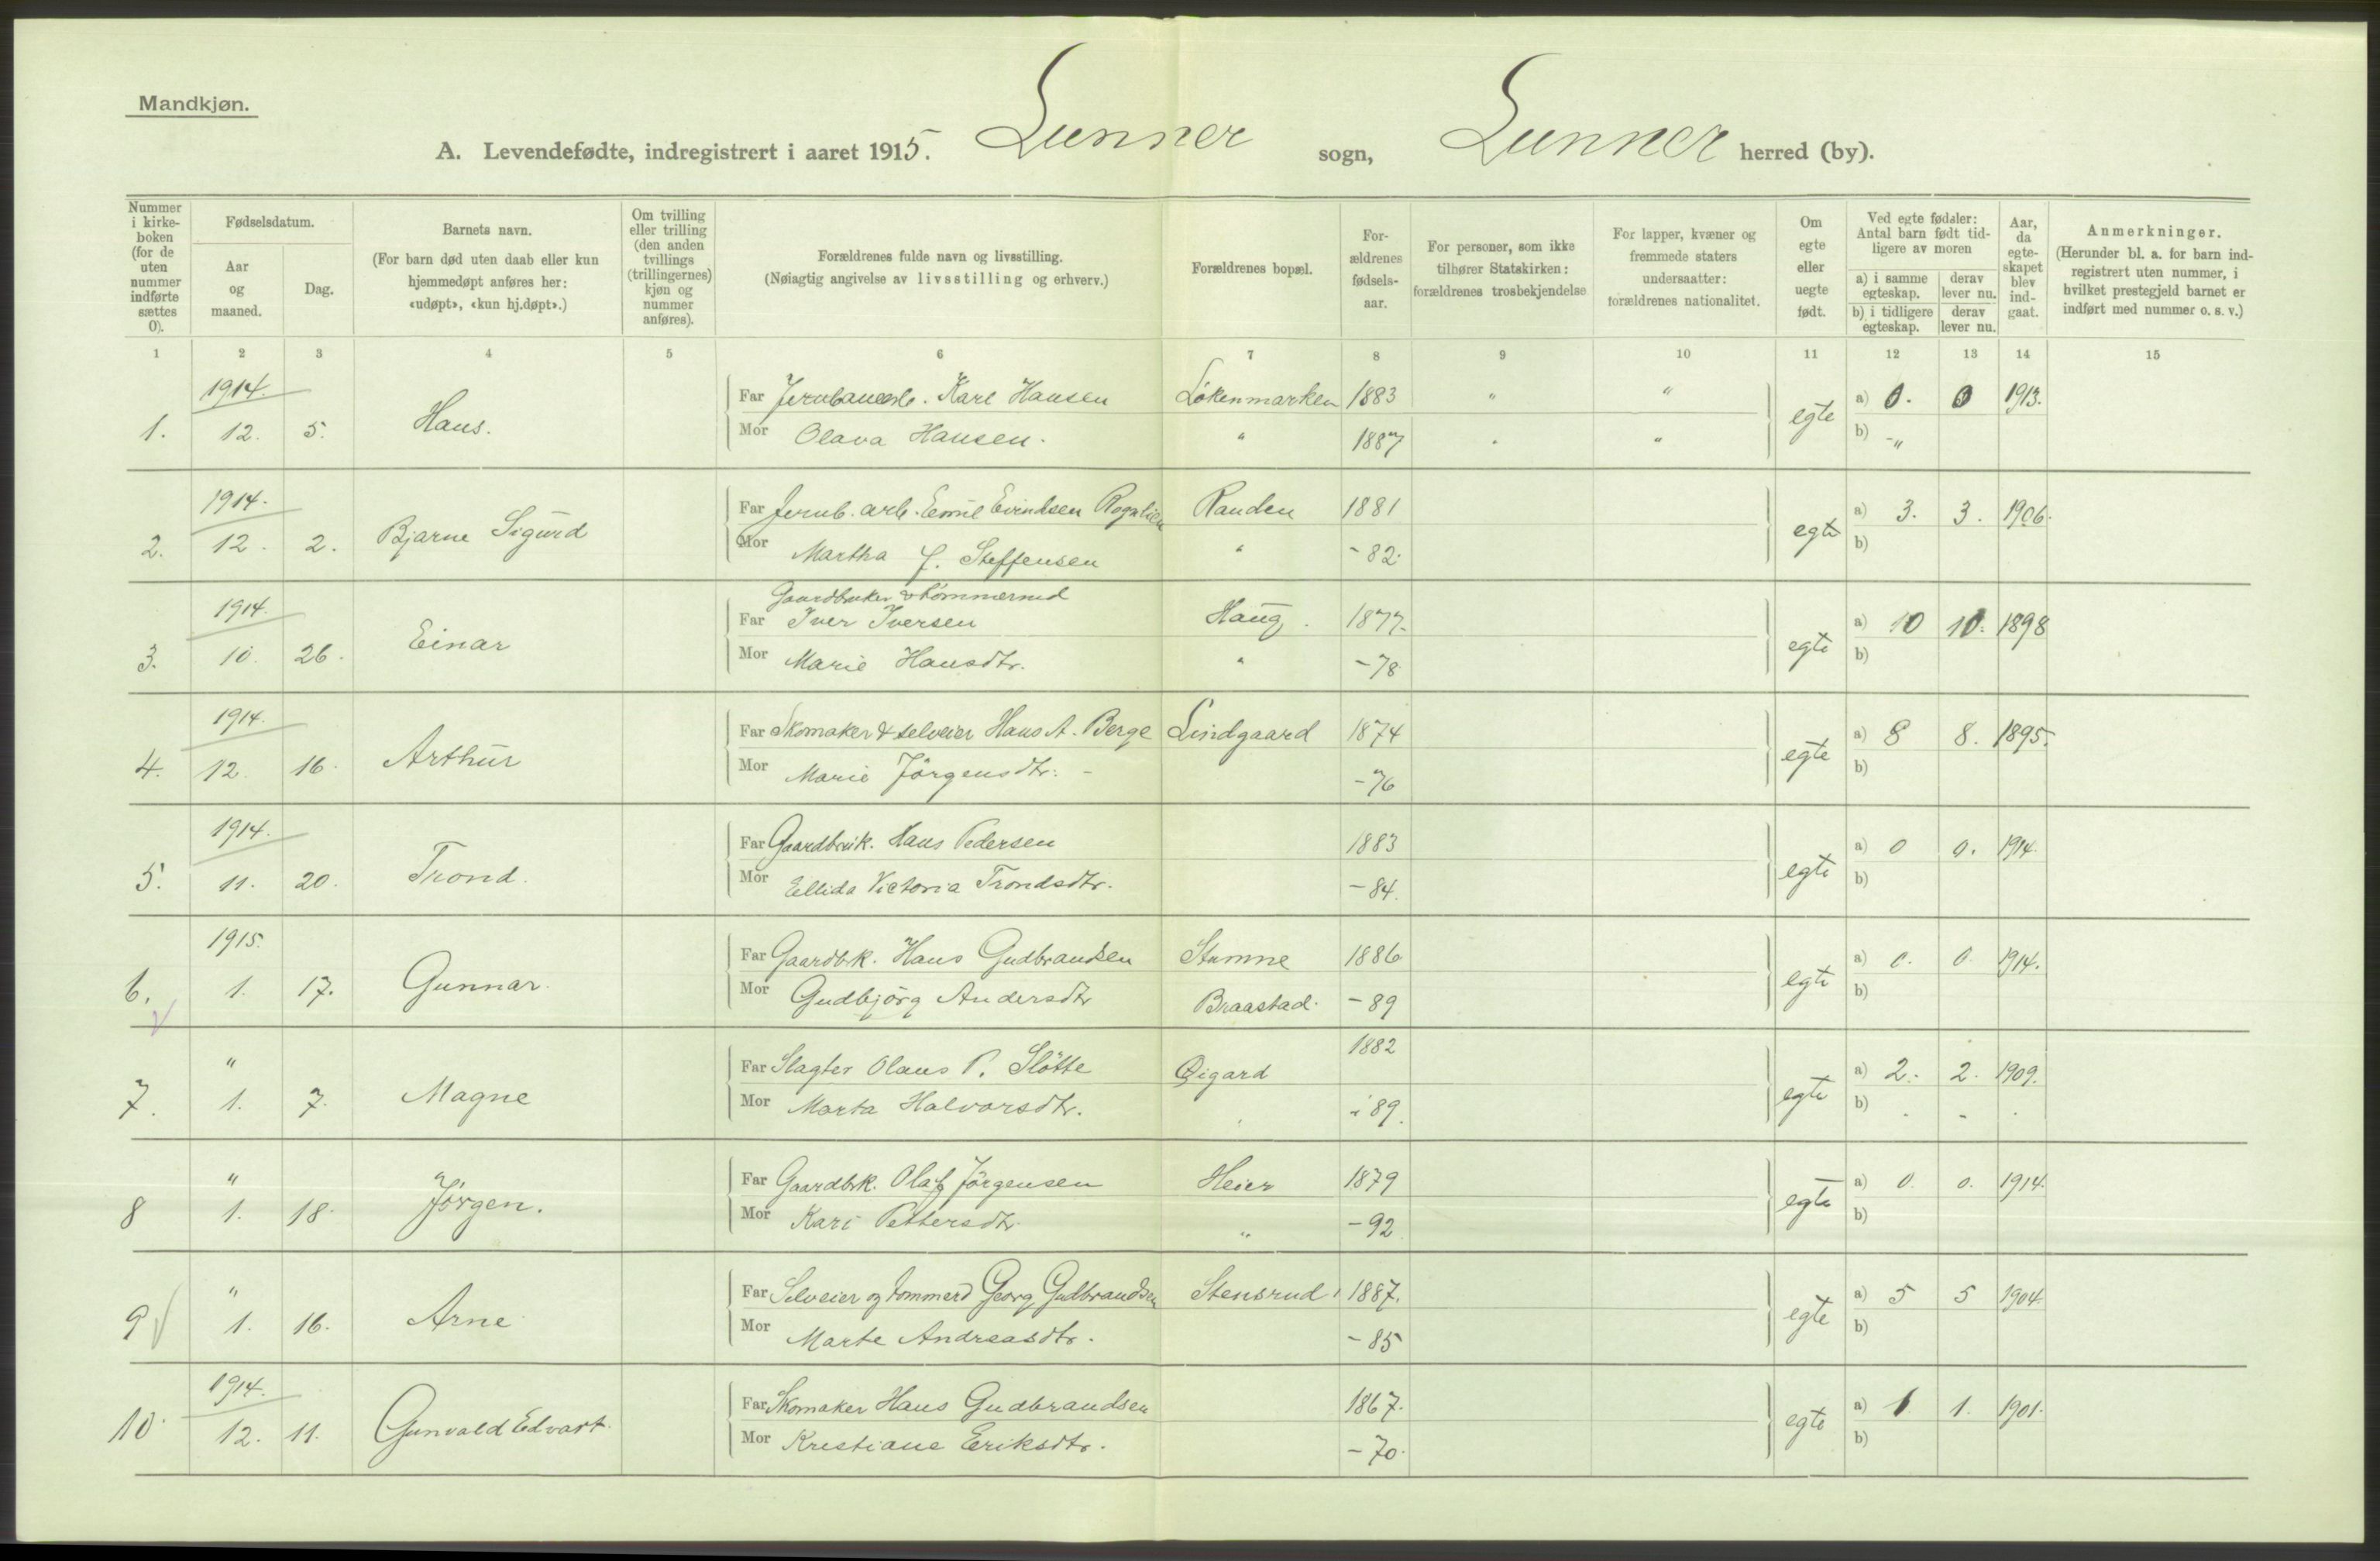 Mandkjøn.
A. Levendefødte, indregistrert i aaret 1915. Lunner sogn, Lunner herred (by).
Nummer i kirke-boken (for de uten nummer indførte sættes 0).
Fødselsdatum.
Aar og maaned.
Dag.
Barnets navn.
(For barn død uten daab eller kun hjemmedøpt anføres her: «udøpt», «kun hj.døpt».)
Om tvilling eller trilling (den anden tvillings (trillingernes) kjøn og nummer anføres).
Forældrenes fulde navn og livsstilling.
(Nøiagtig angivelse av livsstilling og erhverv.)
Forældrenes bopæl.
For-ældrenes fødsels-aar.
For personer, som ikke tilhører Statskirken: forældrenes trosbekjendelse
For lapper, kvæner og fremmede staters undersaatter: forældrenes nationalitet.
Om egte eller uegte født.
Ved egte fødsler: Antal barn født tid-ligere av moren
a) i samme egteskap.
derav lever nu.
b) i tidligere egteskap.
derav lever nu.
Aar, da egte-skapet blev ind-gaat.
Anmerkninger.
(Herunder bl. a. for barn ind-registrert uten nummer, i hvilket prestegjeld barnet er indført med nummer o. s. v.)
1 2 3 4 5 6 7 8 9 10 11 12 13 14 15
1914. Far Karl Hansen Løkenmarken 1883 " " a) 0. 0 1913.
1. 12. 5. Hans. Mor Olava Hansen. " 1887 " " egte b) "
1914. Far Jernb. arb. Emil Evindsen Randen 1881 a) 3. 3. 1906.
2. 12. 2. Bjarne Sigurd Mor Martha J. Steffensen " - 82. egte b)
Gaardbruker &
1914. Far Iver Iversen Haug. 1877. a) 10 10. 1898
3. 10. 26. Einar Mor Marie Hansdtr. " - 78 egte b)
1914. Far Skomaker & selveier Hans A. Berge Lindgaard 1874 a) 8 8. 1895.
4. 12. 16. Arthur Mor Marie Jörgensdtr. - - 76 egte b)
1914. Far Gaardbruk. Hans Pedersen 1883 a) 0 0. 1914.
5. 11. 20. Trond. Mor Ellida Victoria Trondsdtr. - 84. egte b)
1915. Far Gaardbk. Hans Gudbrandsen Stumne 1886 a) 0. 0 1914.
6. 1. 17. Gunnar. Mor Gudbjörg Andersdtr Braastad. - 89 egte b)
" Far Slagter Olaus P. Slötte Øigard 1882 a) 2. 2. 1909.
7. 1. 7. Magne Mor Marta Halvorsdtr. - 89. egte b) . - .
" Far Gaardbk. Olaf Jörgensen Heier 1879 a) 0. 0. 1914.
8 1. 18. Jörgen. Mor Kari Pettersdtr. " - 92 egte b)
" Far Selveier og tommerd Georg Gudbrandsen Stensrud 1887. a) 5 5 1904.
9 1. 16. Arne Mor Marte Andreasdtr. - 85 egte b)
1914. Far Skomaker Hans Gudbrandsen 1867. a) 1 1. 1901.
10 12. 11. Gunvald Edvart. Mor Kristiane Eriksdtr. - 70. egte b)